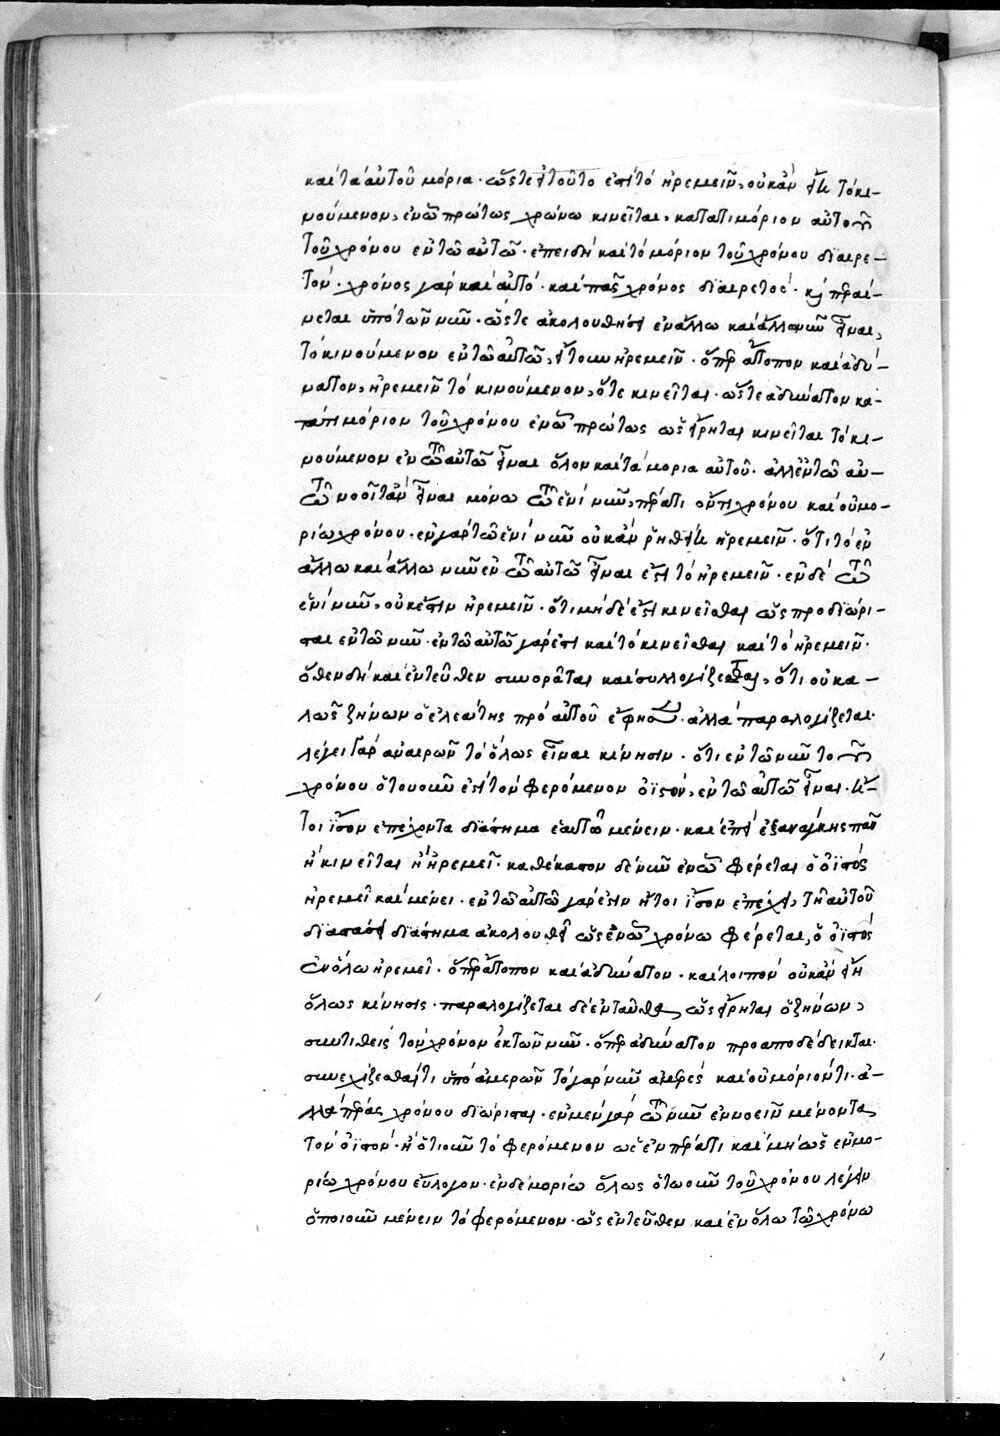 καὶ τὰ αὐτοῦ μόρια· ὥστε εἰ τοῦτο ἐστὶ τὸ ἠρεμεῖν, οὐκ ἂν εἴη τὸ κι–
νούμενον, ἐν ᾧ πρώτως χρόνω κινεῖται, κατά τι μόριον αὐτοῦ
τοῦ χρόνου ἐν τῶ αὐτῶ· ἐπειδὴ καὶ τὸ μόριον τοῦ χρόνου διαιρε–
τόν· χρόνος γὰρ καὶ αὐτό· καὶ πᾶς χρόνος διαιρετός· καὶ περαί–
νεται ὑπὸ τῶν νῦν· ὥστε ἀκολουθήσει ἐν ἄλλω καὶ ἄλλω νῦν εἶναι,
τὸ κινούμενον ἐν τῶ αὐτῶ, ἤτοι ἠρεμεῖν· ὅπερ ἄτοπον καὶ ἀδύ–
νατον, ἠρεμεῖν τὸ κινούμενον, ὅτε κινεῖται· ὥστε ἀδύνατον κα–
τά τι μόριον τοῦ χρόνου ἐν ᾧ πρώτως ὡς εἴρηται κινεῖται τὸ κι–
νούμενον ἐν τῶ αὐτῶ εἶναι ὅλον καὶ τὰ μόρια αὐτοῦ· ἀλλ' ἐν τῶ αὐ–
τῶ νοοῖτ' ἂν εἶναι μόνω τῶ ἑνὶ νῦν, πέρατι ὄντι χρόνου καὶ οὐ μο–
ρίω χρόνου· ἐν γὰρ τῶ ἑνὶ νῦν οὐκ ἂν ῥηθείη ἠρεμεῖν· ὅτι τὸ ἐν
ἄλλω καὶ ἄλλω νῦν ἐν τῶ αὐτῶ εἶναι ἐστὶ τὸ ἠρεμεῖν· ἐν δὲ τῶ
ἑνὶ νῦν, οὐκ ἔστιν ἠρεμεῖν· ὅτι μηδέ ἐστι κινεῖσθαι ὡς προδιώρι–
σται ἐν τῶ νῦν· ἐν τῶ αὐτῶ γάρ ἐστι καὶ τὸ κινεῖσθαι καὶ τὸ ἠρεμεῖν·
ὅθεν δὴ καὶ ἐντεῦθεν συνορᾶται καὶ συλλογίζεται, ὅτι οὐ κα–
λῶς ζήνων ὁ ἐλεάτης πρὸ αὐτοῦ ἔφησεν· ἀλλὰ παραλογίζεται·
λέγει γὰρ ἀναιρῶν τὸ ὅλως εἶναι κίνησιν· ὅτι ἐν τῶ νῦν τοῦ
χρόνου ὁτουοῦν ἐστὶ τὸν φερόμενον ὀϊστὸν, ἐν τῶ αὐτῶ εἶναι· ἤ–
τοι ἴσον ἐπέχοντα διάστημα ἑαυτῶ μένειν· καὶ ἐπεὶ ἐξανάγκης πᾶν
ἢ κινεῖται ἢ ἠρεμεῖ· καθέκαστον δὲ νῦν ἐν ᾧ φέρεται ὁ ὀϊστὸς
ἠρεμεῖ καὶ μένει· ἐν τῶ αὐτῶ γάρ ἐστιν ἤτοι ἴσον ἐπέχει, τῆ αὐτοῦ
διαστάσει διάστημα ἀκολουθεῖ ὡς ἐν ᾧ χρόνω φέρεται, ὁ ὀϊστὸς
ἐν ὅλω ἠρεμεῖ· ὅπερ ἄτοπον καὶ ἀδύνατον· καὶ λοιπὸν οὐκ ἂν εἴη
ὅλως κίνησις· παραλογίζεται δὲ ἐνταῦθα, ὡς εἴρηται ὁ ζήνων,
συντιθεὶς τὸν χρόνον ἐκ τῶν νῦν· ὅπερ ἀδύνατον προαποδέδεικται·
συνεχίζεσθαί τι ὑπὸ ἀμερῶν τὸ γὰρ νῦν ἀμερὲς καὶ οὐ μόριόν τι· ἀ–
λλὰ πέρας χρόνου διώρισται· ἐν μὲν γὰρ τῶ νῦν ἐννοεῖν μένοντα
τὸν ὀϊστόν· ἢ ὁτιοῦν τὸ φερόμενον ὡς ἐν πέρατι καὶ μὴ ὡς ἐν μο–
ρίω χρόνου εὔλογον· ἐν δὲ μορίω ὅλως ὁτωοῦν τοῦ χρόνου λέγειν
ὁποιοῦν μένειν τὸ φερόμενον· ὡς ἐντεῦθεν καὶ ἐν ὅλω τῶ χρόνω